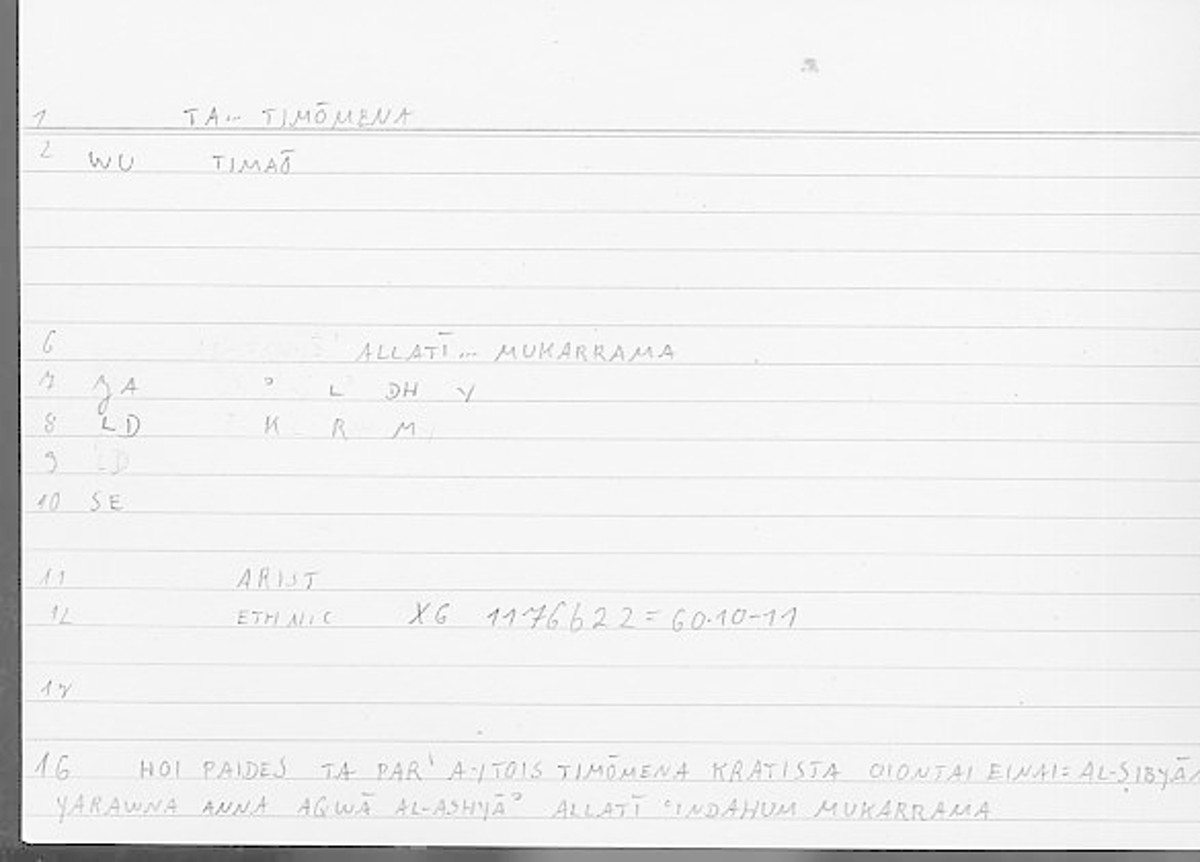 1 TA... TIMŌMENA
2 WU TIMAŌ
6 ALLATĪ... MUKARRAMA
7 ʾ L DH Y
8 LD K R M
9 LD
10 SE
11 ARIST
12 ETHNIC XG 1176b22=60.10-11
16 HOI PAIDES TA PAR' TIMŌMENA KRATISTA OIONTAI EINAI=
YARAWNA ANNA AQWĀ AL-ASHYĀʾ ALLATĪ ʿINDAHUM MUKARRAMA